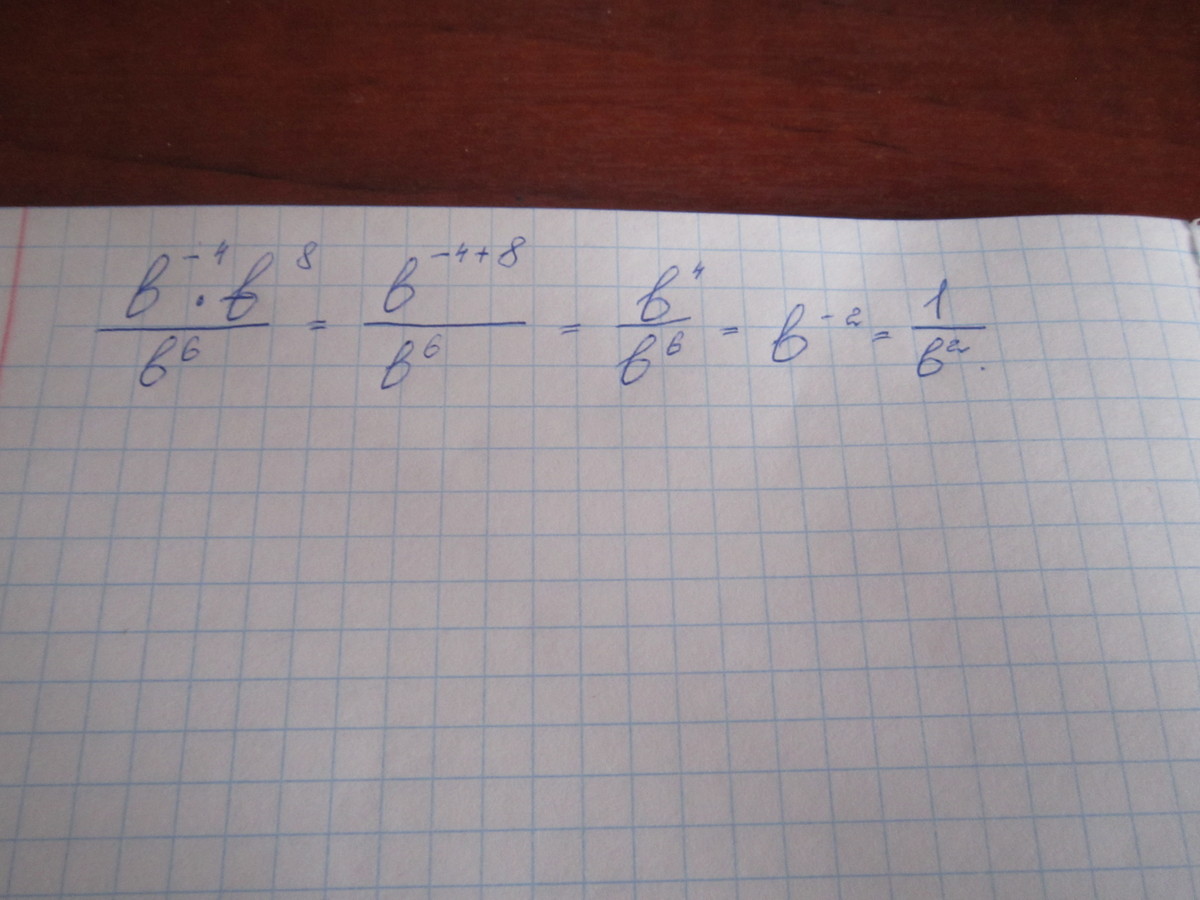 $\frac{b^{-4} \cdot b^{8}}{b^{6}} = \frac{b^{-4+8}}{b^{6}} = \frac{b^{4}}{b^{6}} = b^{-2} = \frac{1}{b^{2}}.$